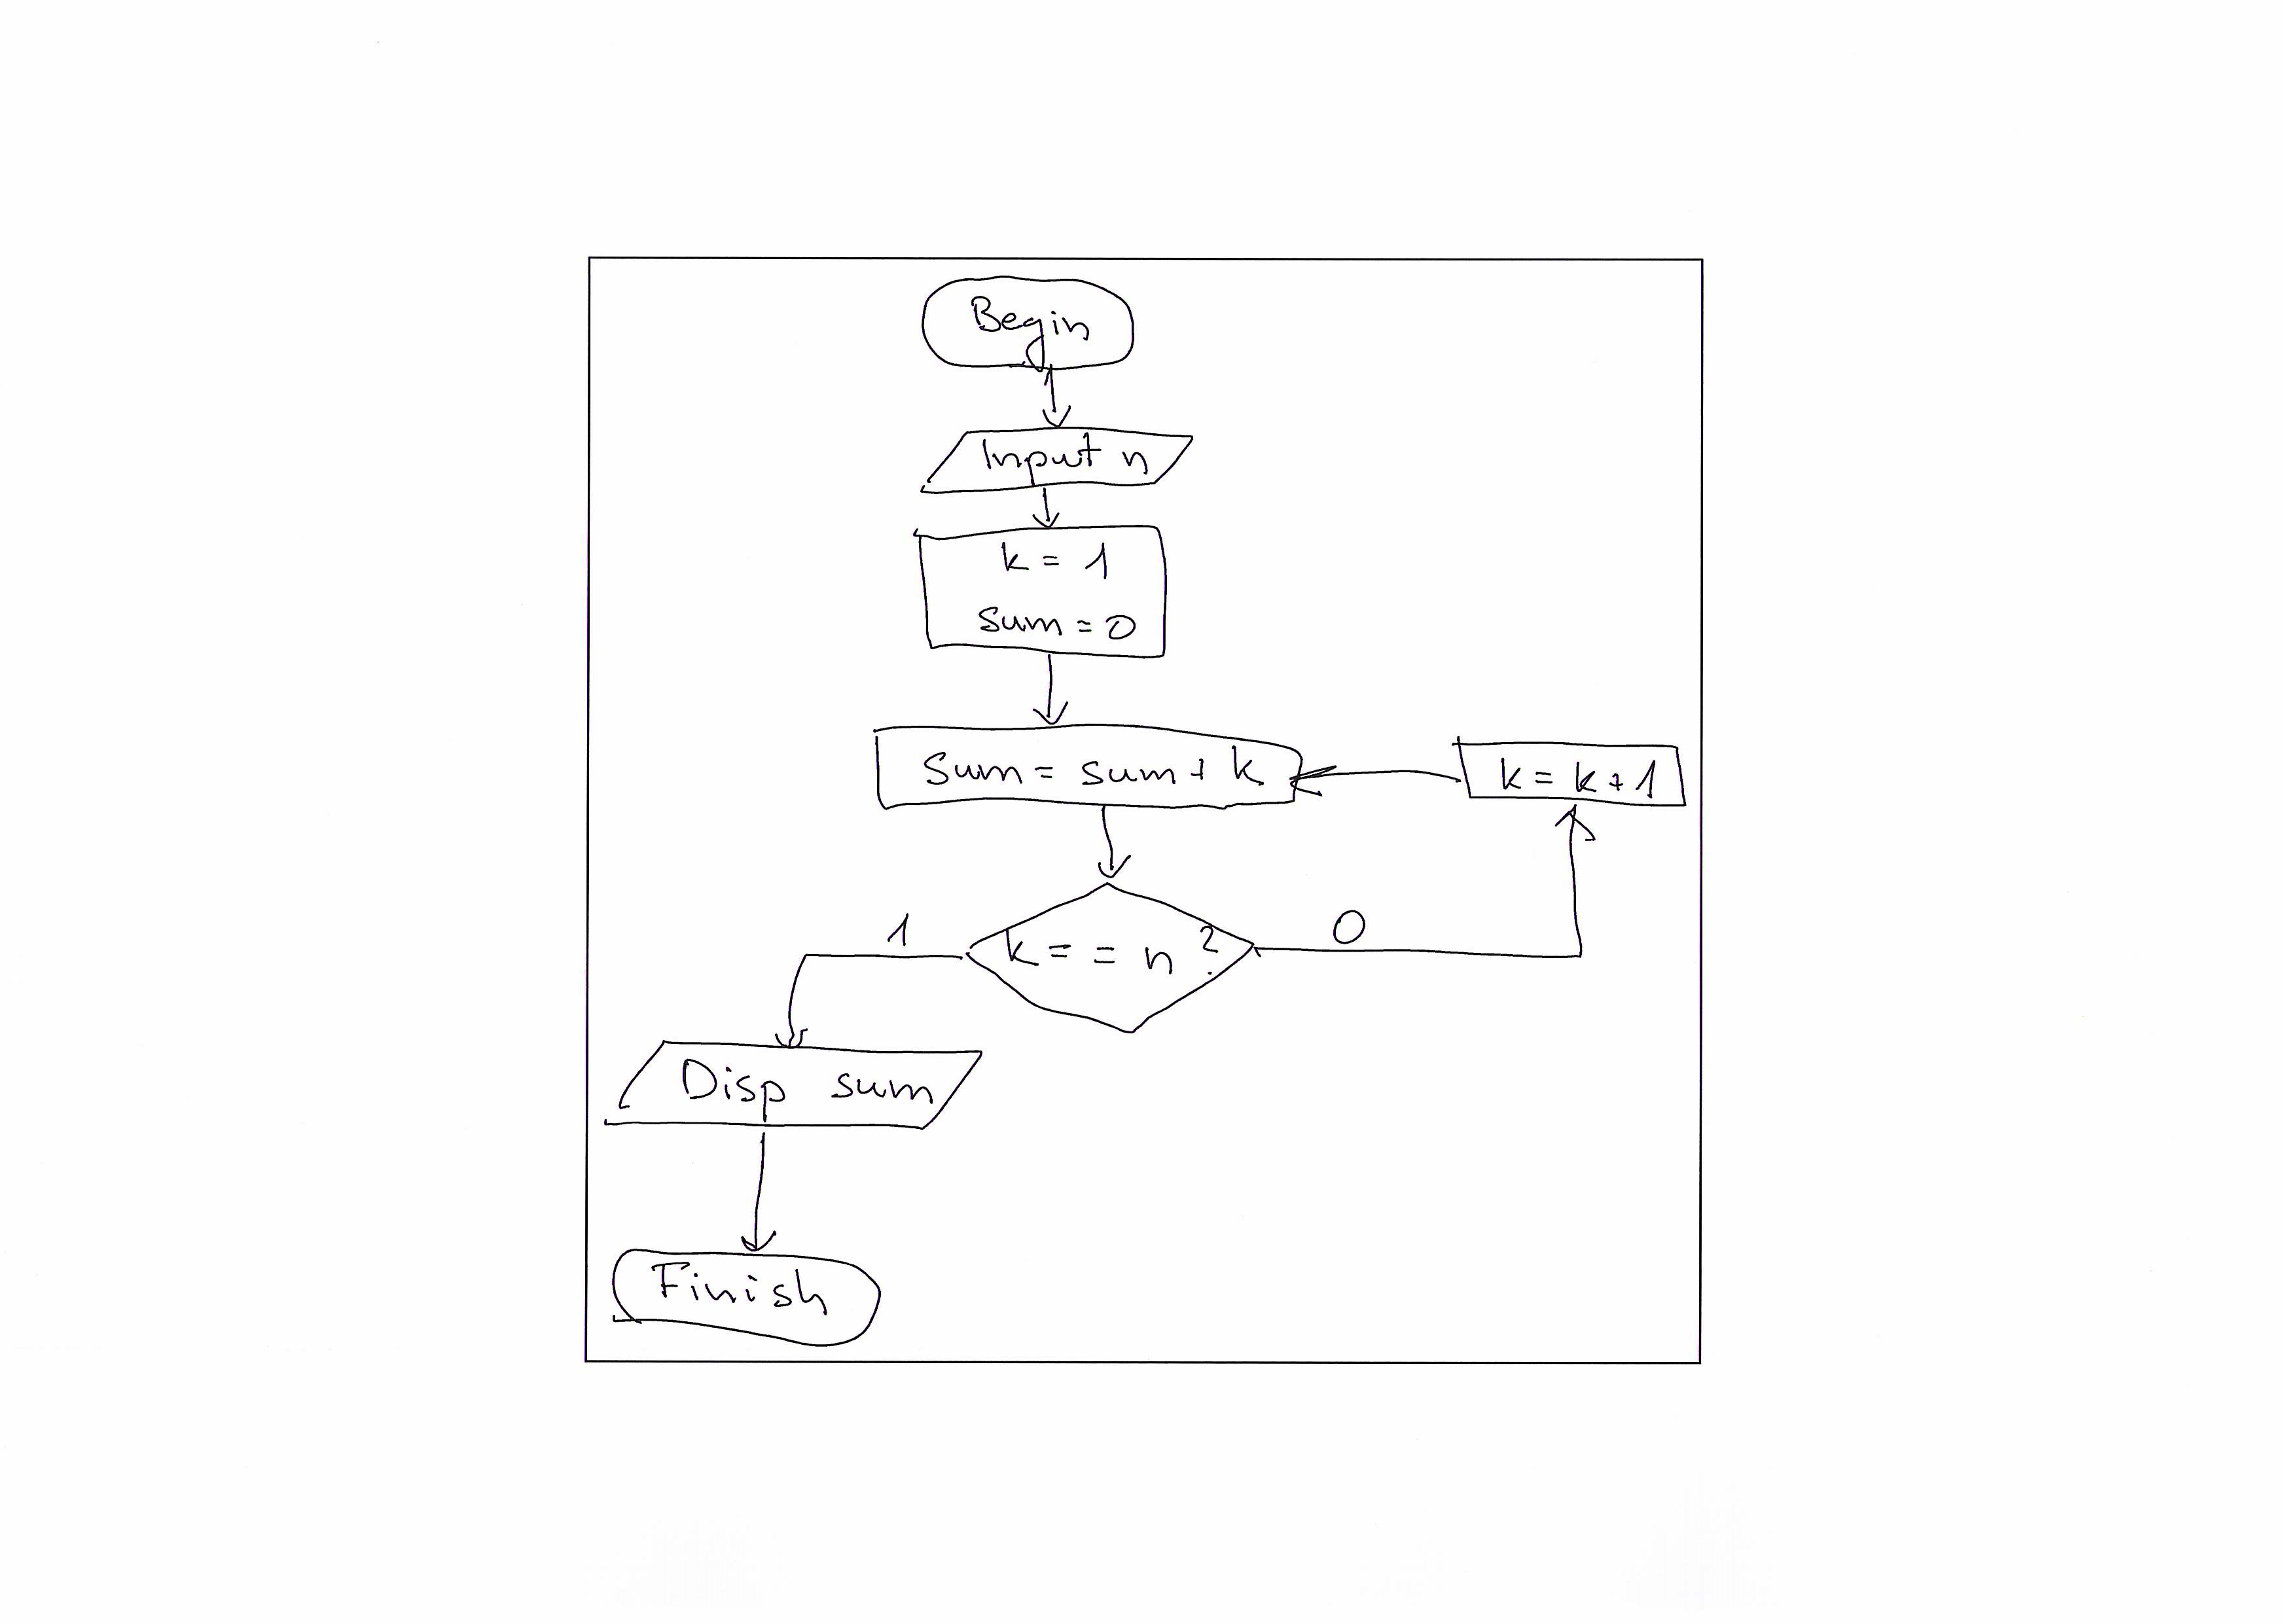 Begin
Input n
k = 1
sum = 0
Sum = sum + k
k = k + 1
k = = n ?
1
0
Disp sum
Finish